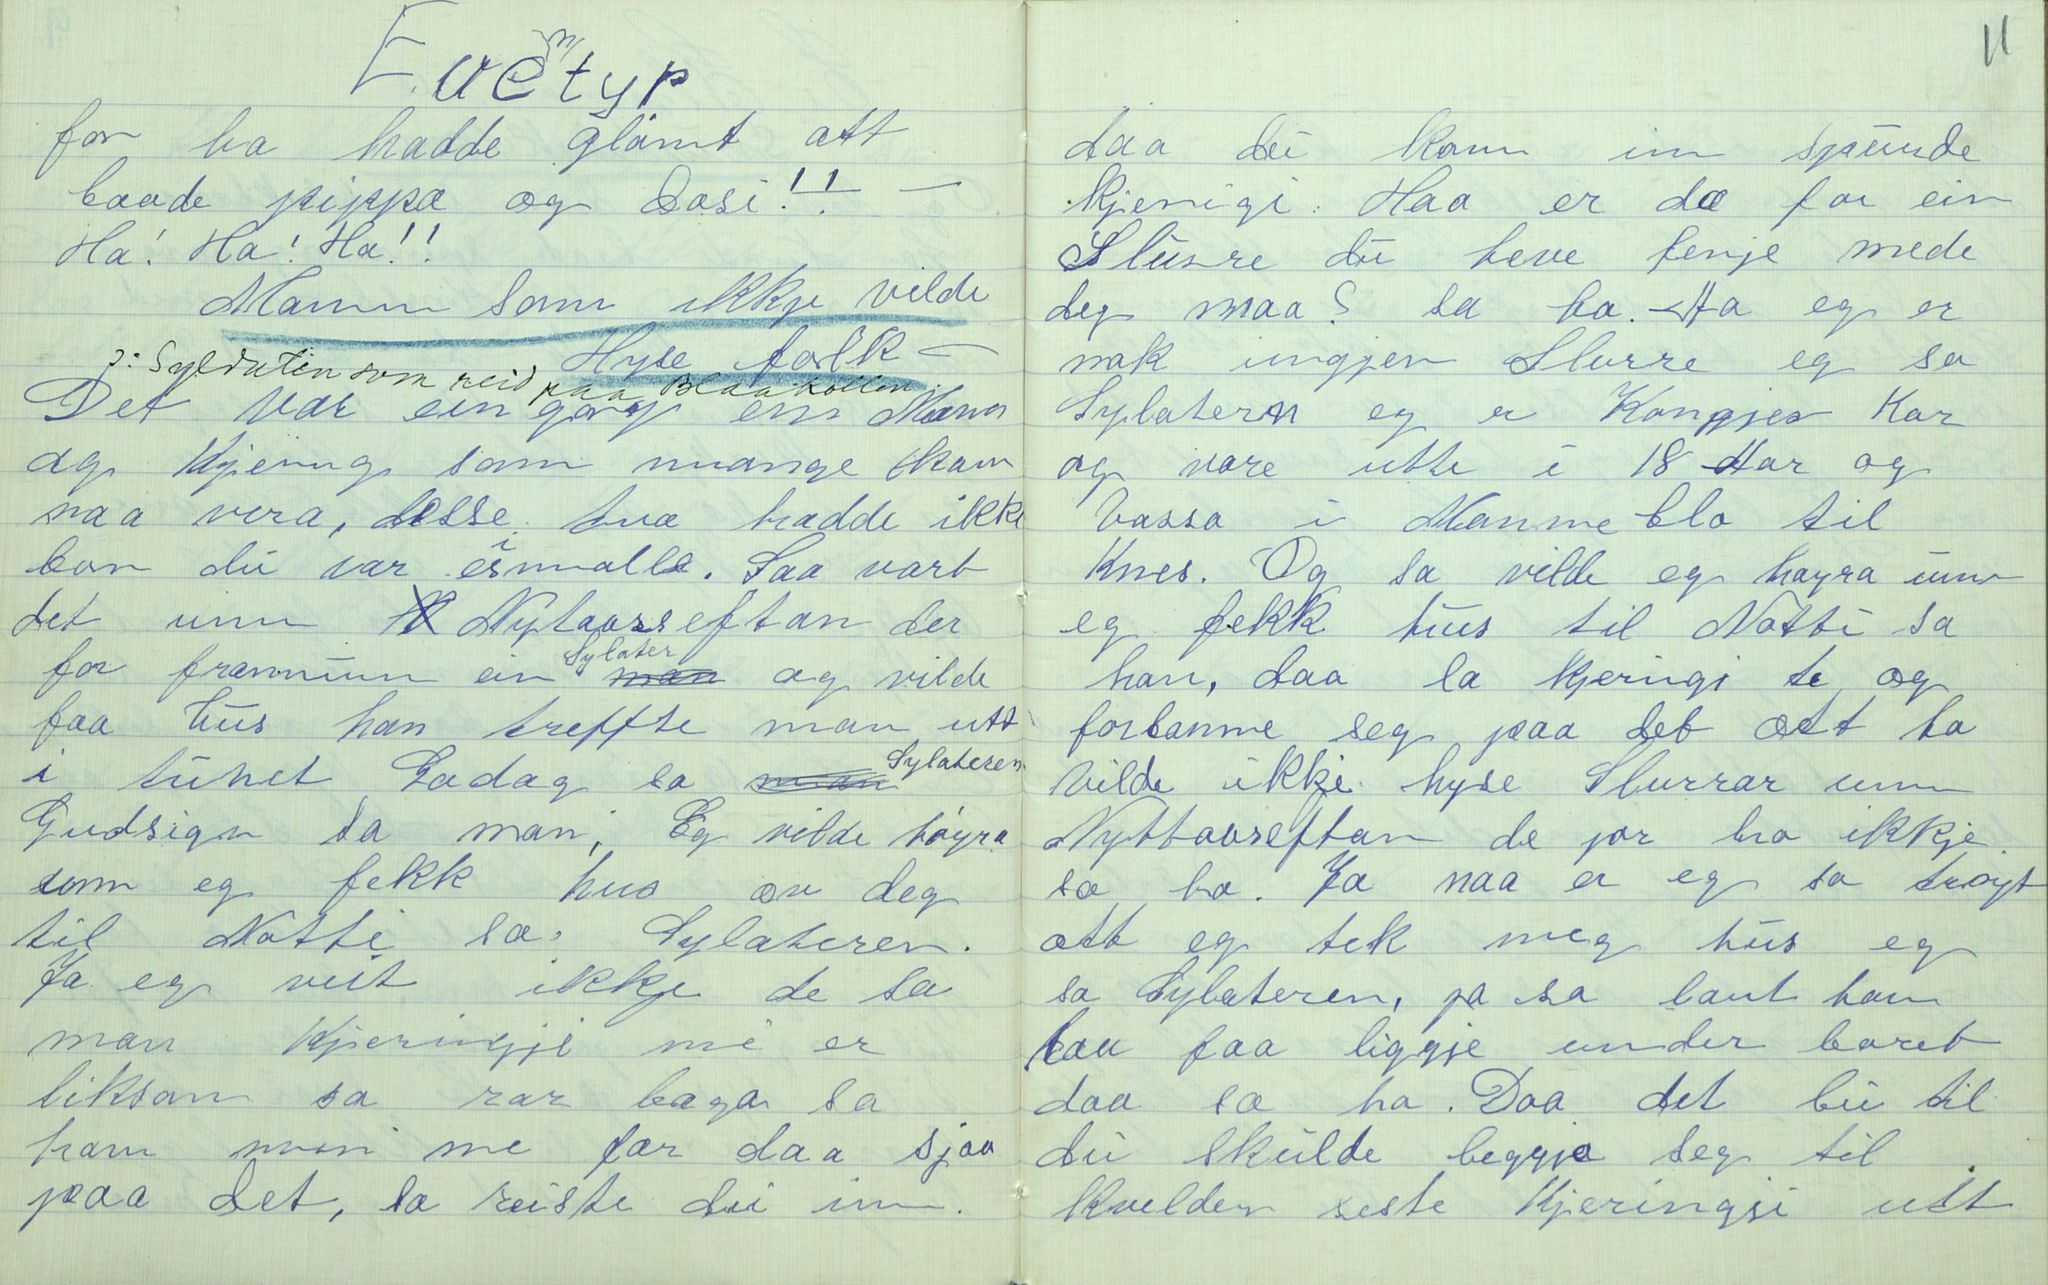 Eventyr
for ha hadde glømt att
baade pippa og Dasi!! —
Ha! Ha! Ha!!
Mannn som ikkje vilde
Hyse folk —
ɔ: Syldaten som reid paa Blaakollen.
Det var eingong ein Mann
og Kjering som mange kann
naa vera, desse tvæ hadde ikkje
bon dü var einmalle. Saa vart
det umm Nytaarseftan der
for frammüm ein Sylater og vilde
faa hüs han treffte man utt
i tünet Godag sa Sylateren
Gudsign sa man, Eg vilde høyra
umm eg fekk hus av deg
til Notti sa Sylateren.
Ja eg veit ikkje de sa
man Kjeringji mi er
liksom sa rar baga sa
han men me fær daa sjaa
paa det, sa reiste dü inn.
11
daa dü kom inn spünde
kjeringi. Haa er dæ for ein
Slüsre dü heve fenje mede
deg maa? sa ho. Aa eg er
nok ingjen Slurre eg sa
Sylatern eg er Kongjes Kar
og vore utte i 18 Aar og
Vassa i Manneblo til
Knes. Og sa vilde eg høyra üm
eg fekk hüs til Notti sa
han, daa la kjeringi te og
forbanne seg paa det ætt ho
vilde ikkje hyse Slurrar umm
Nyttaarseftan de jor ho ikkje
sa ho. Ja naa er eg sa trøyt
ott eg tek meg hüs eg
sa Sylateren, ja sa laut han
daa faa liggje under boret
daa sa ho. Daa det bü til
dü skülde leggja seg til
kvelden seste Kjeringji utt